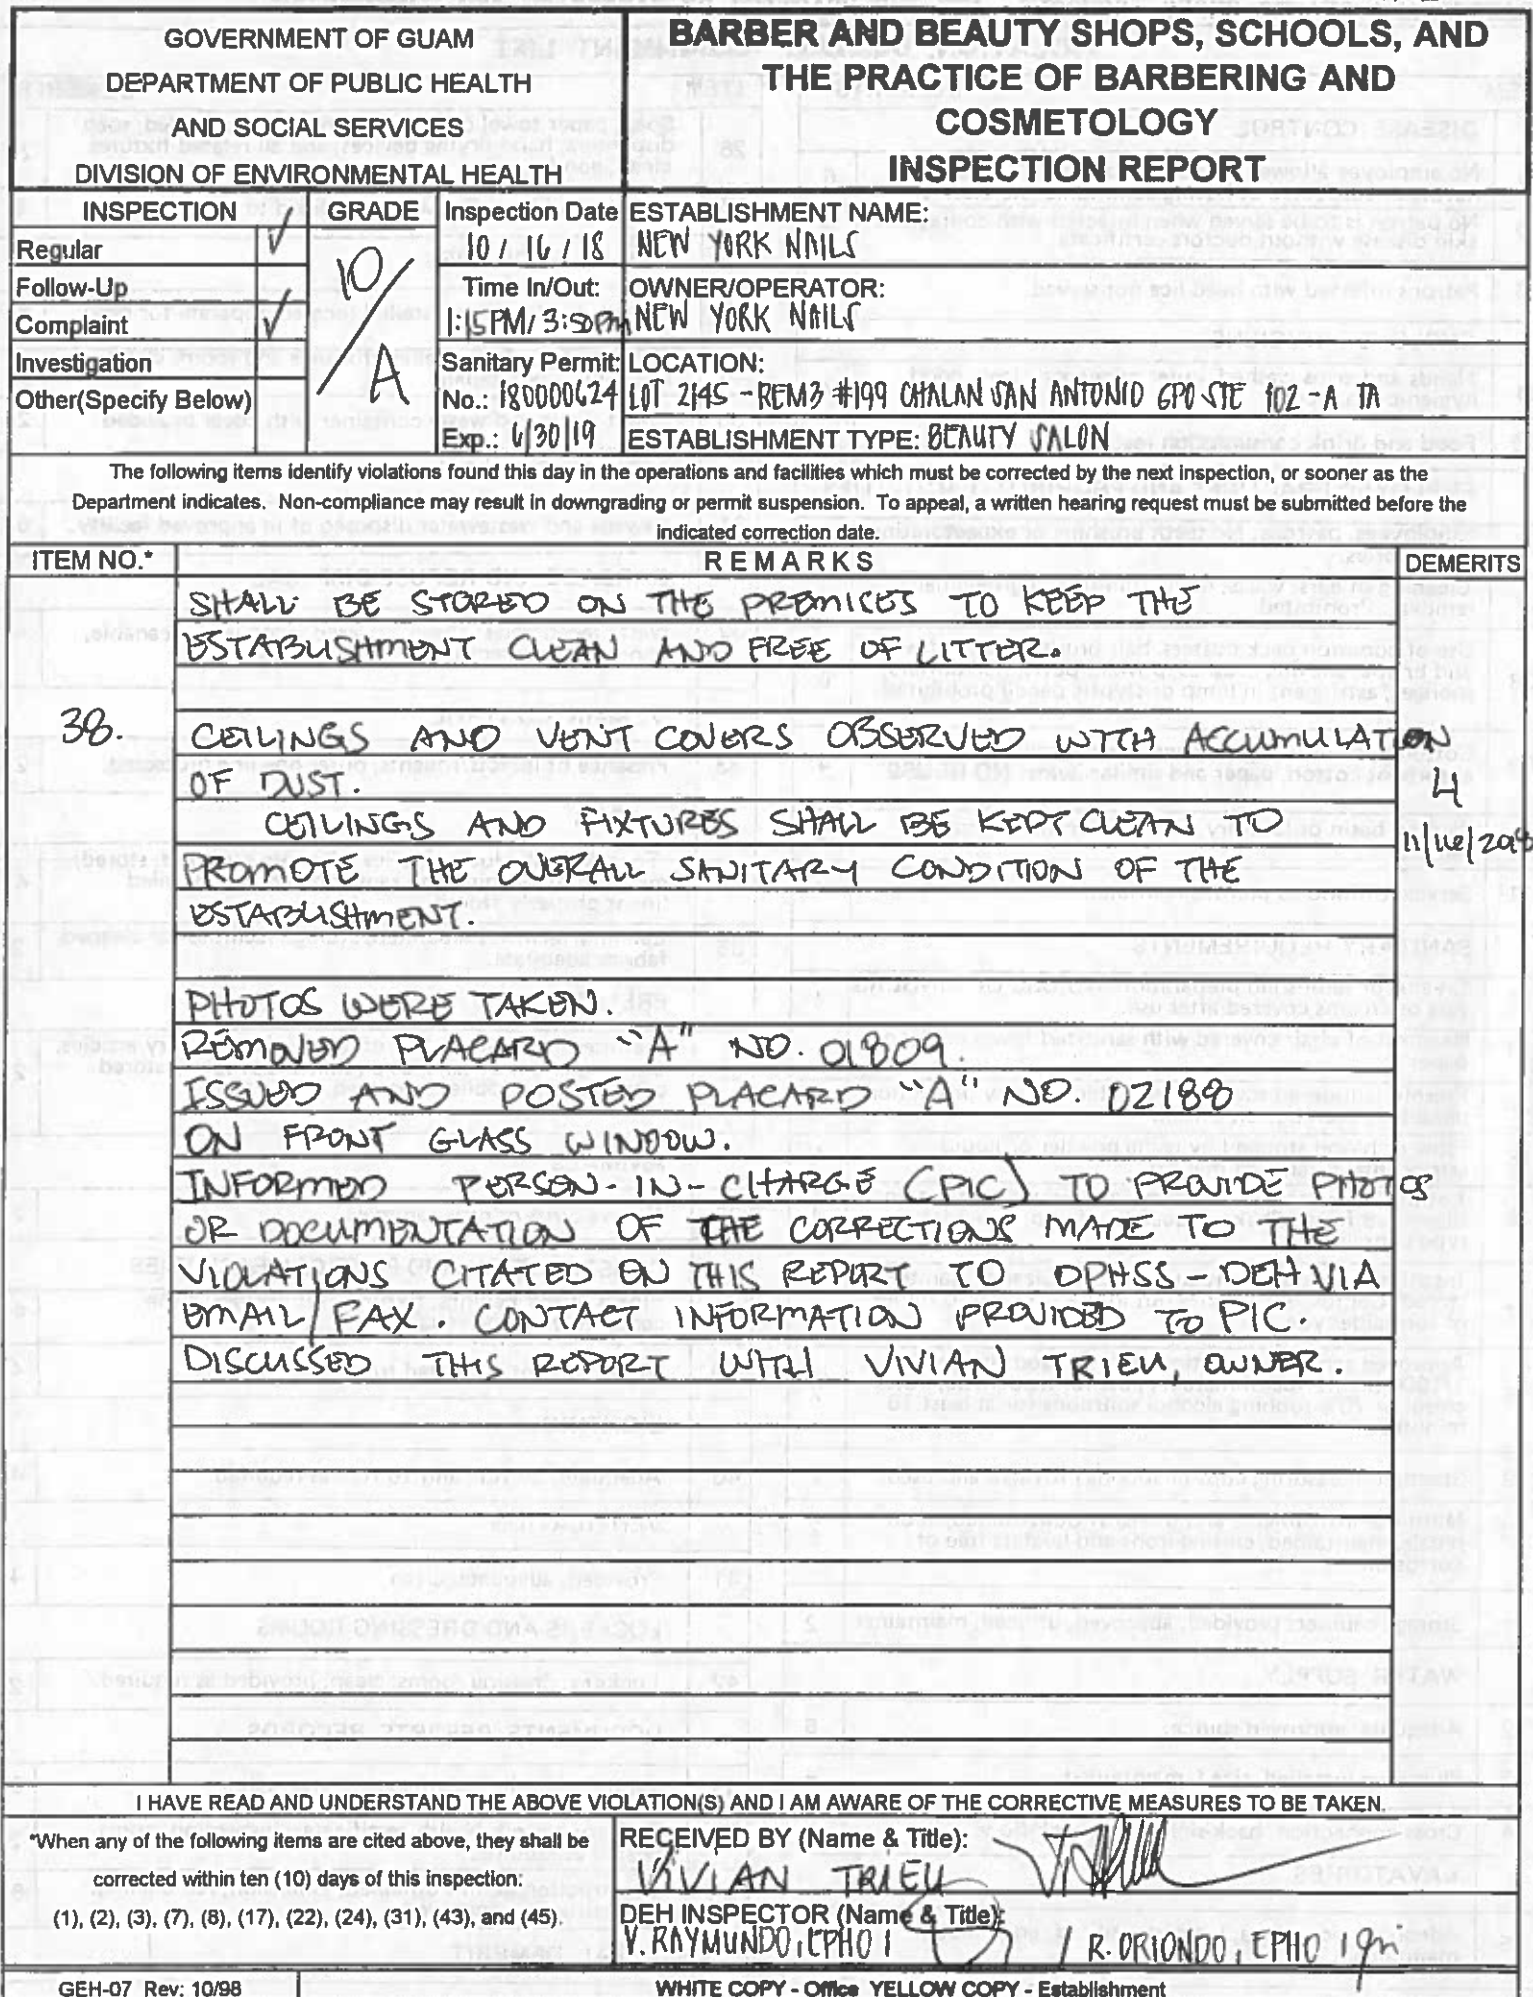 GOVERNMENT OF GUAM
DEPARTMENT OF PUBLIC HEALTH
AND SOCIAL SERVICES
DIVISION OF ENVIRONMENTAL HEALTH
BARBER AND BEAUTY SHOPS, SCHOOLS, AND
THE PRACTICE OF BARBERING AND
COSMETOLOGY
INSPECTION REPORT
INSPECTION √ GRADE
Regular √
Follow-Up
Complaint √
Investigation
Other(Specify Below)
10/A
Inspection Date
10/16/18
Time In/Out:
1:15PM/3:50PM
Sanitary Permit:
No.: 180000624
Exp.: 6/30/19
ESTABLISHMENT NAME:
NEW YORK NAILS
OWNER/OPERATOR:
NEW YORK NAILS
LOCATION:
LOT 2145-REM3 #199 CHALAN SAN ANTONIO GPO STE 102-A TA
ESTABLISHMENT TYPE: BEAUTY SALON
The following items identify violations found this day in the operations and facilities which must be corrected by the next inspection, or sooner as the
Department indicates. Non-compliance may result in downgrading or permit suspension. To appeal, a written hearing request must be submitted before the
indicated correction date.
ITEM NO.* REMARKS DEMERITS
SHALL BE STORED ON THE PREMICES TO KEEP THE
ESTABLISHMENT CLEAN AND FREE OF LITTER.
38. CEILINGS AND VENT COVERS OBSERVED WITH ACCUMULATION
OF DUST. 4
CEILINGS AND FIXTURES SHALL BE KEPT CLEAN TO 11/16/2018
PROMOTE THE OVERALL SANITARY CONDITION OF THE
ESTABLISHMENT.
PHOTOS WERE TAKEN.
REMOVED PLACARD "A" NO. 01809.
ISSUED AND POSTED PLACARD "A" NO. 02188
ON FRONT GLASS WINDOW.
INFORMED PERSON-IN-CHARGE (PIC) TO PROVIDE PHOTOS
OR DOCUMENTATION OF THE CORRECTIONS MADE TO THE
VIOLATIONS CITATED ON THIS REPORT TO DPHSS DEH VIA
EMAIL/FAX. CONTACT INFORMATION PROVIDED TO PIC.
DISCUSSED THIS REPORT WITH VIVIAN TRIEU, OWNER.
I HAVE READ AND UNDERSTAND THE ABOVE VIOLATION(S) AND I AM AWARE OF THE CORRECTIVE MEASURES TO BE TAKEN.
*When any of the following items are cited above, they shall be
corrected within ten (10) days of this inspection:
(1), (2), (3), (7), (8), (17), (22), (24), (31), (43), and (45).
RECEIVED BY (Name & Title):
VIVIAN TRIEU
DEH INSPECTOR (Name & Title):
V. RAYMUNDO, EPHO I / R. ORIONDO, EPHO I
GEH-07 Rev: 10/98
WHITE COPY - Office YELLOW COPY - Establishment